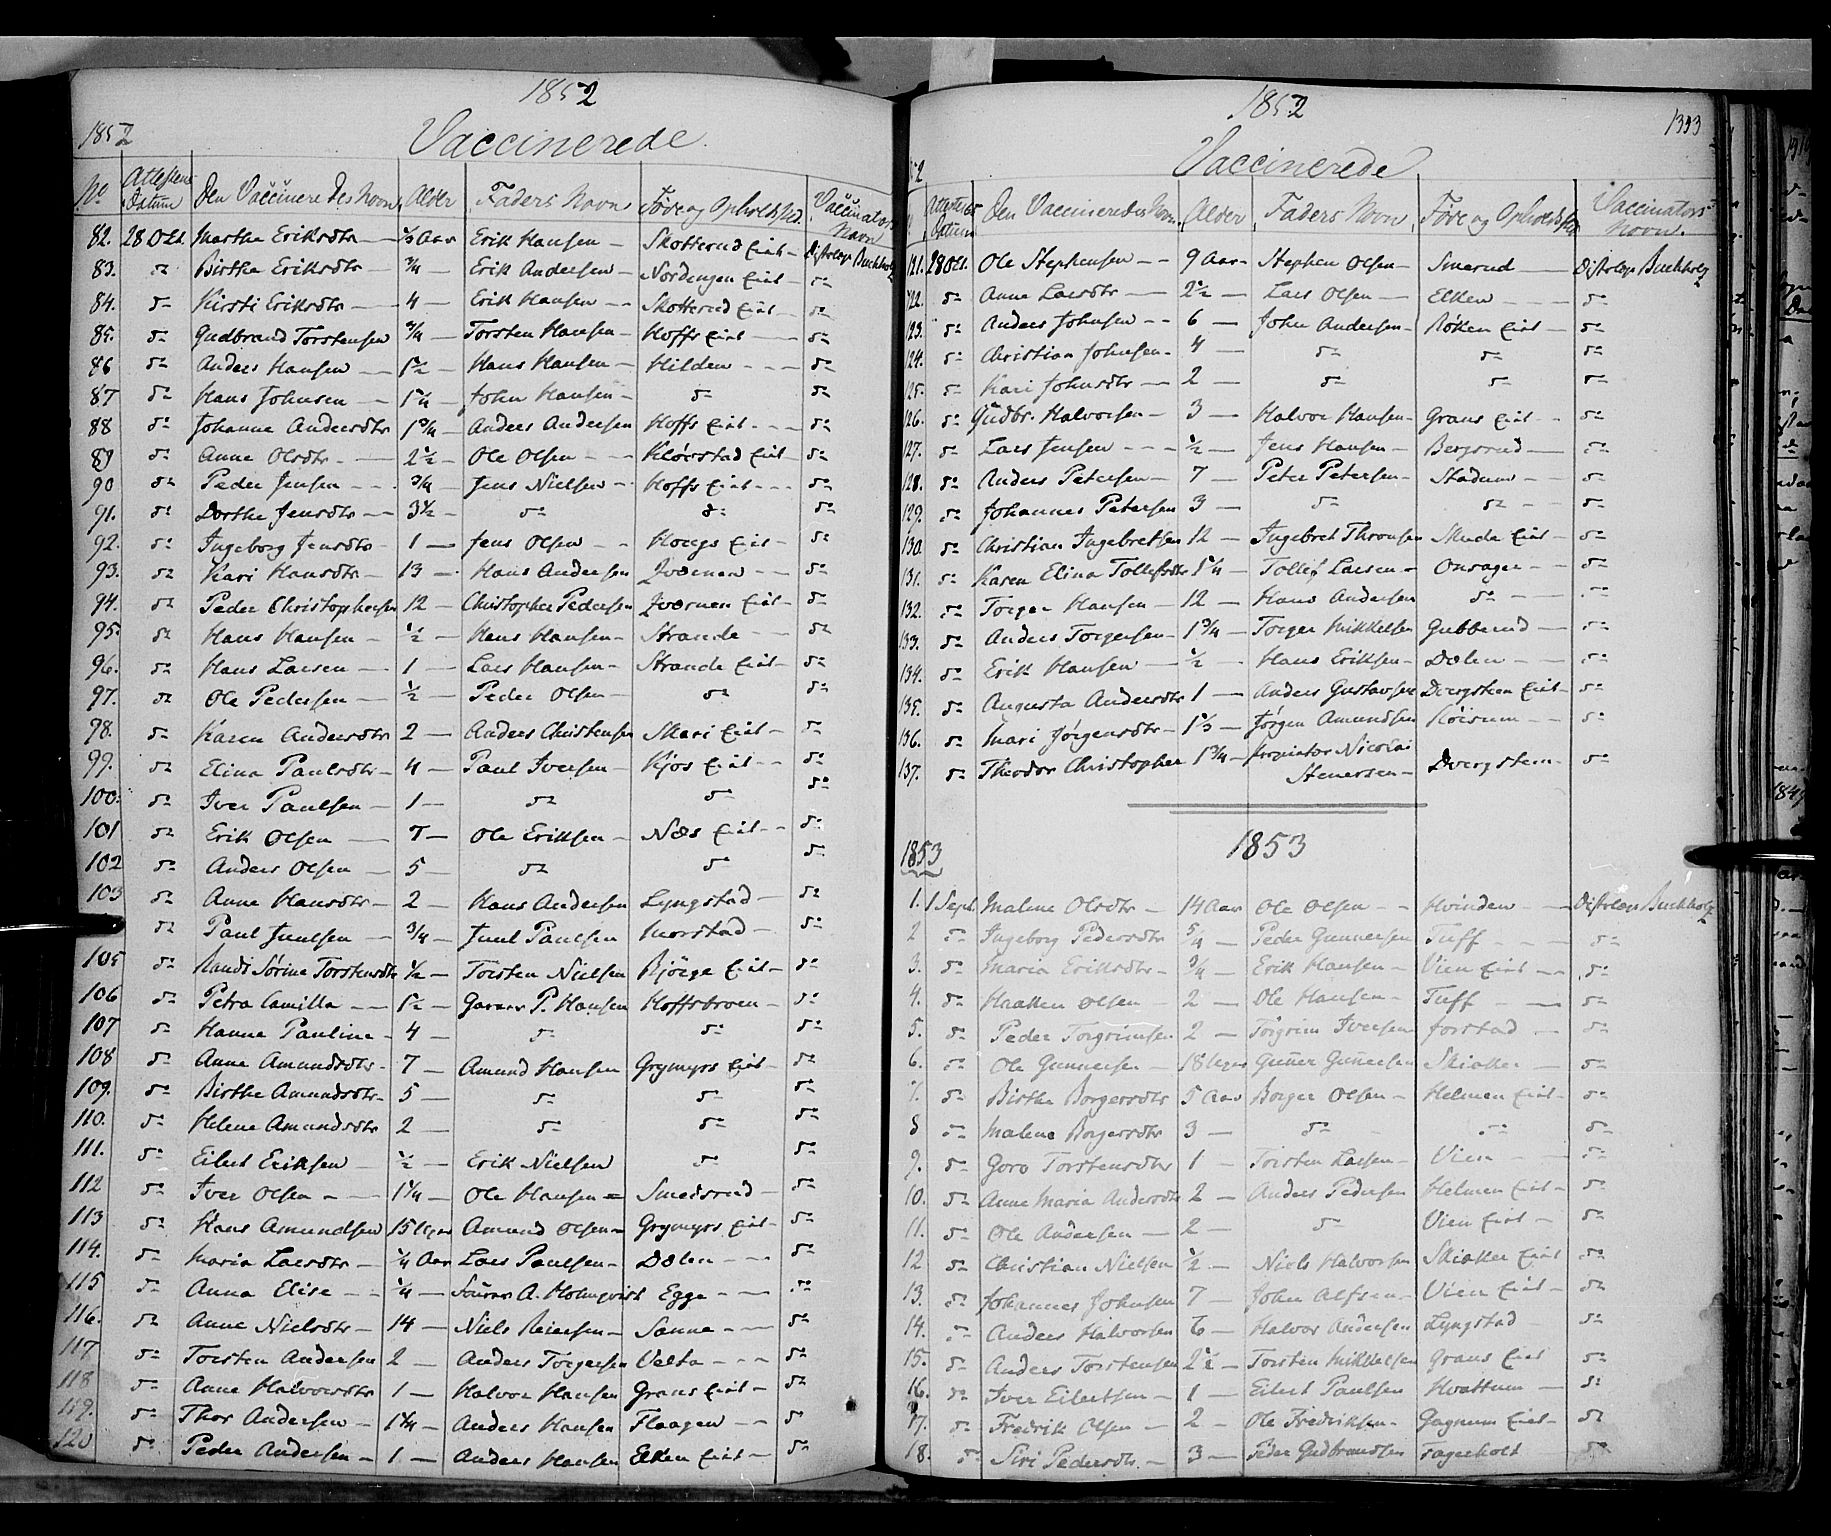 1852
1852
Vaccinerede.
No Attestens Datum Den Vaccineredes Navn Alder Faders Navn Føde og Opholdsted Vaccinators Navn
82. 28 Oct. Marthe Eriksdtr — 1/3 Aar Erik Hansen — Skotterud Eiet — Distrlæge Buchholz
83. do Birthe Eriksdtr — 3/4 — Erik Andersen — Nordengen Eiet — do
84. do Kirsti Eriksdtr — 4 — Erik Hansen — Skotterud Eiet — do
85. do Gudbrand Torstensen 3/4 — Torsten Hansen — Hoffs Eiet — do
86 do Anders Hansen — 1 1/2 — Hans Hansen — Hilden — do
87 do Hans Johnsen — 1 1/4 — John Hansen — do do
88 do Johanne Andersdtr 1 3/4 — Anders Andersen Hoffs Eiet — do
89 do Anne Olsdtr — 2 1/2 — Ole Olsen — Klørstad Eiet — do
90 do Peder Jensen — 3/4 — Jens Nielsen — Hoffs Eiet — do
91. do Dorthe Jensdtr — 3 1/2 — do do do
92. do Ingeborg Jensdtr — 1 — Jens Olsen — Hougs Eiet — do
93. do Kari Hansdtr — 13 — Hans Andersen Hværnen — do
94. do Peder Christophersen 12 — Christopher Pedersen Hværnen Eiet — do
95. do Hans Hansen — 1/2 — Hans Hansen — Strande — do
96. do Hans Larsen — 1 — Lars Hansen — Strande Eiet — do
97. do Ole Pedersen — 1/2 — Peder Olsen — do do
98. do Karen Andersdtr 2 — Anders Christensen Skari Eiet — do
99. do Elina Paulsdtr — 4 — Paul Iversen — Kjos Eiet — do
100. do Iver Paulsen — 1 — do do do
101 do Erik Olsen — 7 — Ole Eriksen — Næs Eiet — do
102 do Anders Olsen — 5 — do do do
103 do Anne Hansdtr — 2 — Hans Andersen Lyngstad — do
do Paul Juulsen — 3/4 — Juul Paulsen Morstad — do
105 do Randi Sørine Torstensdtr 1/2 — Torsten Nielsen Bjørge Eiet — do
106 do Petra Camilla — 1 1/2 — Garver P. Hansen Hoffsbroen — do
107 do Hanne Pauline — 4 — do do do
108 do Anne Amundsdtr — 7 — Amund Hansen Grymyrs Eiet — do
109. do Birthe Amundsdtr — 5 — do do do
110. do Helene Amundsdtr 2 — do do do
111. do Eilert Eriksen — 1/2 — Erik Nielsen do do
112 do Iver Olsen — 1 1/4 — Ole Hansen — Smedsrud — do
113 do Hans Amundsen 15 Uger Amund Olsen — Grymyrs Eiet — do
114. do Maria Larsdtr — 1/4 Aar Lars Paulsen — Dølen — do
115 do Anna Elise — 1/4 — A. Holmqvist Egge — do
116. do Anne Nielsdtr — 14 — Niels Reiersen — Sønne — do
117 do Torsten Andersen 2 — Anders Torgersen Velta — do
118 do Anne Halvorsdtr 1 — Halvor Hansen Grans Eiet — do
119. do Thor Andersen — 1 1/4 — Anders Hansen Flaagen — do
120 do Peder Andersen — 1 — Anders Hansen Elken Eiet — do
1852
1353
Vaccinerede
52
Attestens Datum Den Vaccineredes Navn Alder Faders Navn Føde og Opholdsted Vaccinators Navn.
121. 28 Oct. Ole Stephensen — 9 Aar — Stephen Olsen — Smerud — Distrlæge Buchholz
122. do Anne Larsdtr — 2 1/2 — Lars Olsen — Elken — do
123. do Anders Johnsen — 6 — John Andersen — Røken Eiet — do
124. do Christian Johnsen — 4 — do do do
125. do Kari Johnsdtr — 2 — do do do
126. do Gudbr. Halvorsen — 3 — Halvor Hansen — Grans Eiet — do
127. do Lars Jensen — 1/2 — Jens Hansen — Bergsrud — do
128. do Anders Petersen — 7 — Peter Petersen — Stadum — do
129. do Johannes Petersen 3 — do do do
130. do Christian Ingebretsen 12 — Ingebret Thronsen Skute Eiet — do
131. do Karen Elina Tollefsdtr 1 1/4 — Tollef Larsen — Onsager — do
132. do Torger Hansen — 12 — Hans Andersen do do
133. do Anders Torgersen — 1 3/4 — Torger Mikkelsen Gubberud — do
134. do Erik Hansen — 1/2 — Hans Eriksen — Dølen — do
135. do Augusta Andersdtr 1 — Anders Gustavsen Dvergsten Eiet — do
136. do Mari Jørgensdtr — 1 1/3 — Jørgen Amundsen Røisum — do
137. do Theodor Christopher 1 3/4 — Propriatør Nicolai Stenersen — Dvergsten — do
1853
1853
1. 1 Sept. Malene Olsdtr — 14 Aar Ole Olsen — Hvinden — Distrlæge Buchholz
2 do Ingeborg Pedersdtr 5/4 — Peder Gunnersen Tuff — do
3. do Maria Eriksdtr — 3/4 — Erik Hansen — Vien Eiet — do
4. do Haaken Olsen — 2 — Ole Hansen — Tuff — do
5. do Peder Torgrimsen 2 — Torgrim Iversen Jorstad — do
6. do Ole Gunnersen — 18 Uger Gunner Gunnersen Skiaker — do
7. do Birthe Borgersdtr 5 Aar Borger Olsen — Helmen Eiet — do
8 do Malene Borgersdtr 3 — do do do
9. do Goro Torstensdtr 1 — Torsten Larsen — Vien — do
10. do Anne Maria Andersdtr 2 — Anders Pedersen Helmen Eiet — do
11. do Ole Andersen — 2 — do Vien Eiet — do
12 do Christian Nielsen 1/2 — Niels Halvorsen Skiaker Eiet do
13. do Johannes Johnsen 7 — John Alfsen — Vien Eiet — do
14. do Anders Halvorsen 6 — Halvor Andersen Lyngstad — do
15. do Anders Torstensen 2 1/2 — Torsten Mikkelsen Grans Eiet do
16. do Iver Eilertsen — 1 — Eilert Paulsen Hvattum — do
17. do Fredrik Olsen — 2 — Ole Fredriksen — Gagnum Eiet — do
18. do Siri Pedersdtr. — 3 — Peder Gudbrandsen Fagerholt do